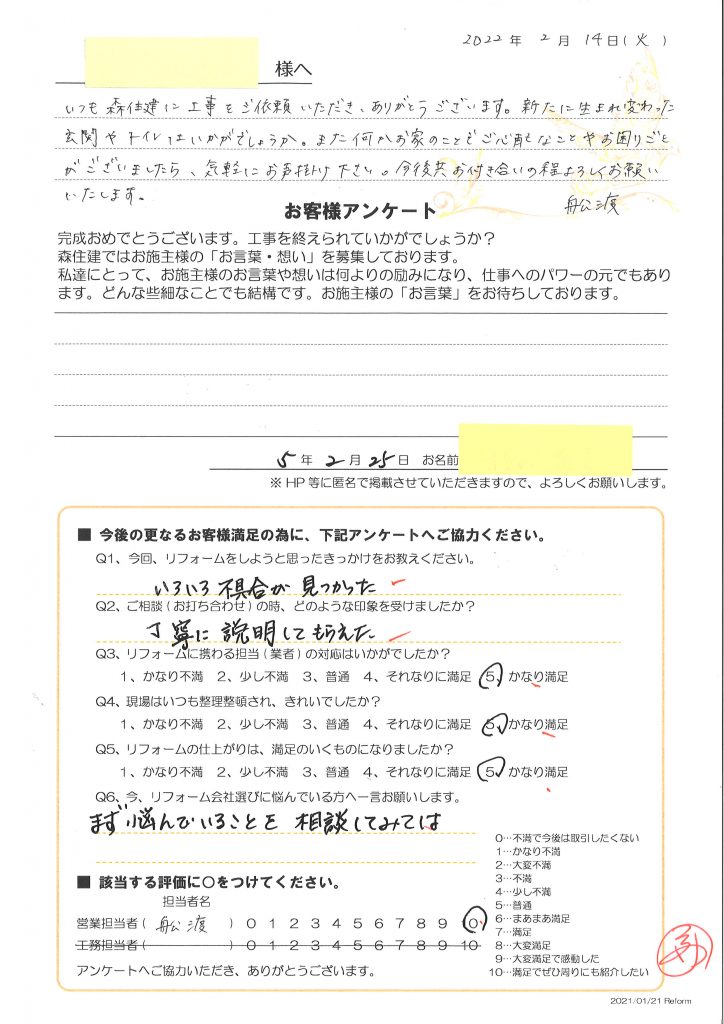 2022年 2月 14日(火)
様へ
いつも森住建に工事をご依頼いただき、ありがとうございます。新たに生まれ変わった
玄関やトイレはいかがでしょうか。また何かお家のことでご心配なことやお困りごと
がございましたら、気軽にお声掛け下さい。今後共お付き合いの程よろしくお願い
いたします。
舩渡
お客様アンケート
完成おめでとうございます。工事を終えられていかがでしょうか？
森住建ではお施主様の「お言葉・想い」を募集しております。
私達にとって、お施主様のお言葉や想いは何よりの励みになり、仕事へのパワーの元でもあり
ます。どんな些細なことでも結構です。お施主様の「お言葉」をお待ちしております。
5年 2月 25日 お名前
※HP等に匿名で掲載させていただきますので、よろしくお願いします。
■ 今後の更なるお客様満足の為に、下記アンケートへご協力ください。
Q1、今回、リフォームをしようと思ったきっかけをお教えください。
いろいろ不具合が見つかった
Q2、ご相談(お打ち合わせ)の時、どのような印象を受けましたか？
丁寧に説明してもらえた
Q3、リフォームに携わる担当(業者)の対応はいかがでしたか？
1、かなり不満 2、少し不満 3、普通 4、それなりに満足 5、かなり満足
Q4、現場はいつも整理整頓され、きれいでしたか？
1、かなり不満 2、少し不満 3、普通 4、それなりに満足 5、かなり満足
Q5、リフォームの仕上がりは、満足のいくものになりましたか？
1、かなり不満 2、少し不満 3、普通 4、それなりに満足 5、かなり満足
Q6、今、リフォーム会社選びに悩んでいる方へ一言お願いします。
まず悩んでいることを相談してみては
■ 該当する評価に○をつけてください。
担当者名
営業担当者( 舩渡 ) 0 1 2 3 4 5 6 7 8 9 10
工務担当者( ) 0 1 2 3 4 5 6 7 8 9 10
アンケートへご協力いただき、ありがとうございます。
0…不満で今後は取引したくない
1…かなり不満
2…大変不満
3…不満
4…少し不満
5…普通
6…まあまあ満足
7…満足
8…大変満足
9…大変満足で感動した
10…満足でぜひ周りにも紹介したい
2021/01/21 Reform